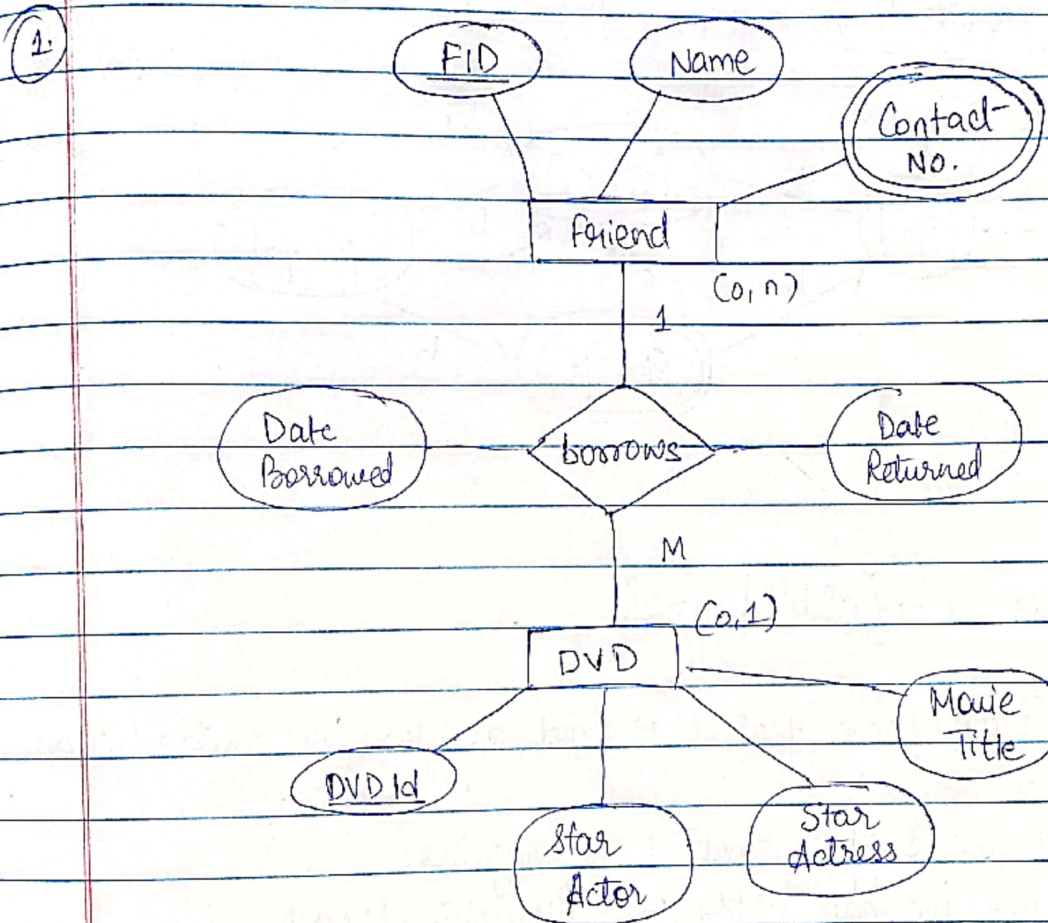 1.
FID
Name
Contact
No.
Friend
(0,n)
1
Date
Borrowed
borrows
Date
Returned
M
(0,1)
DVD
Movie
Title
DVD Id
Star
Actor
Star
Actress